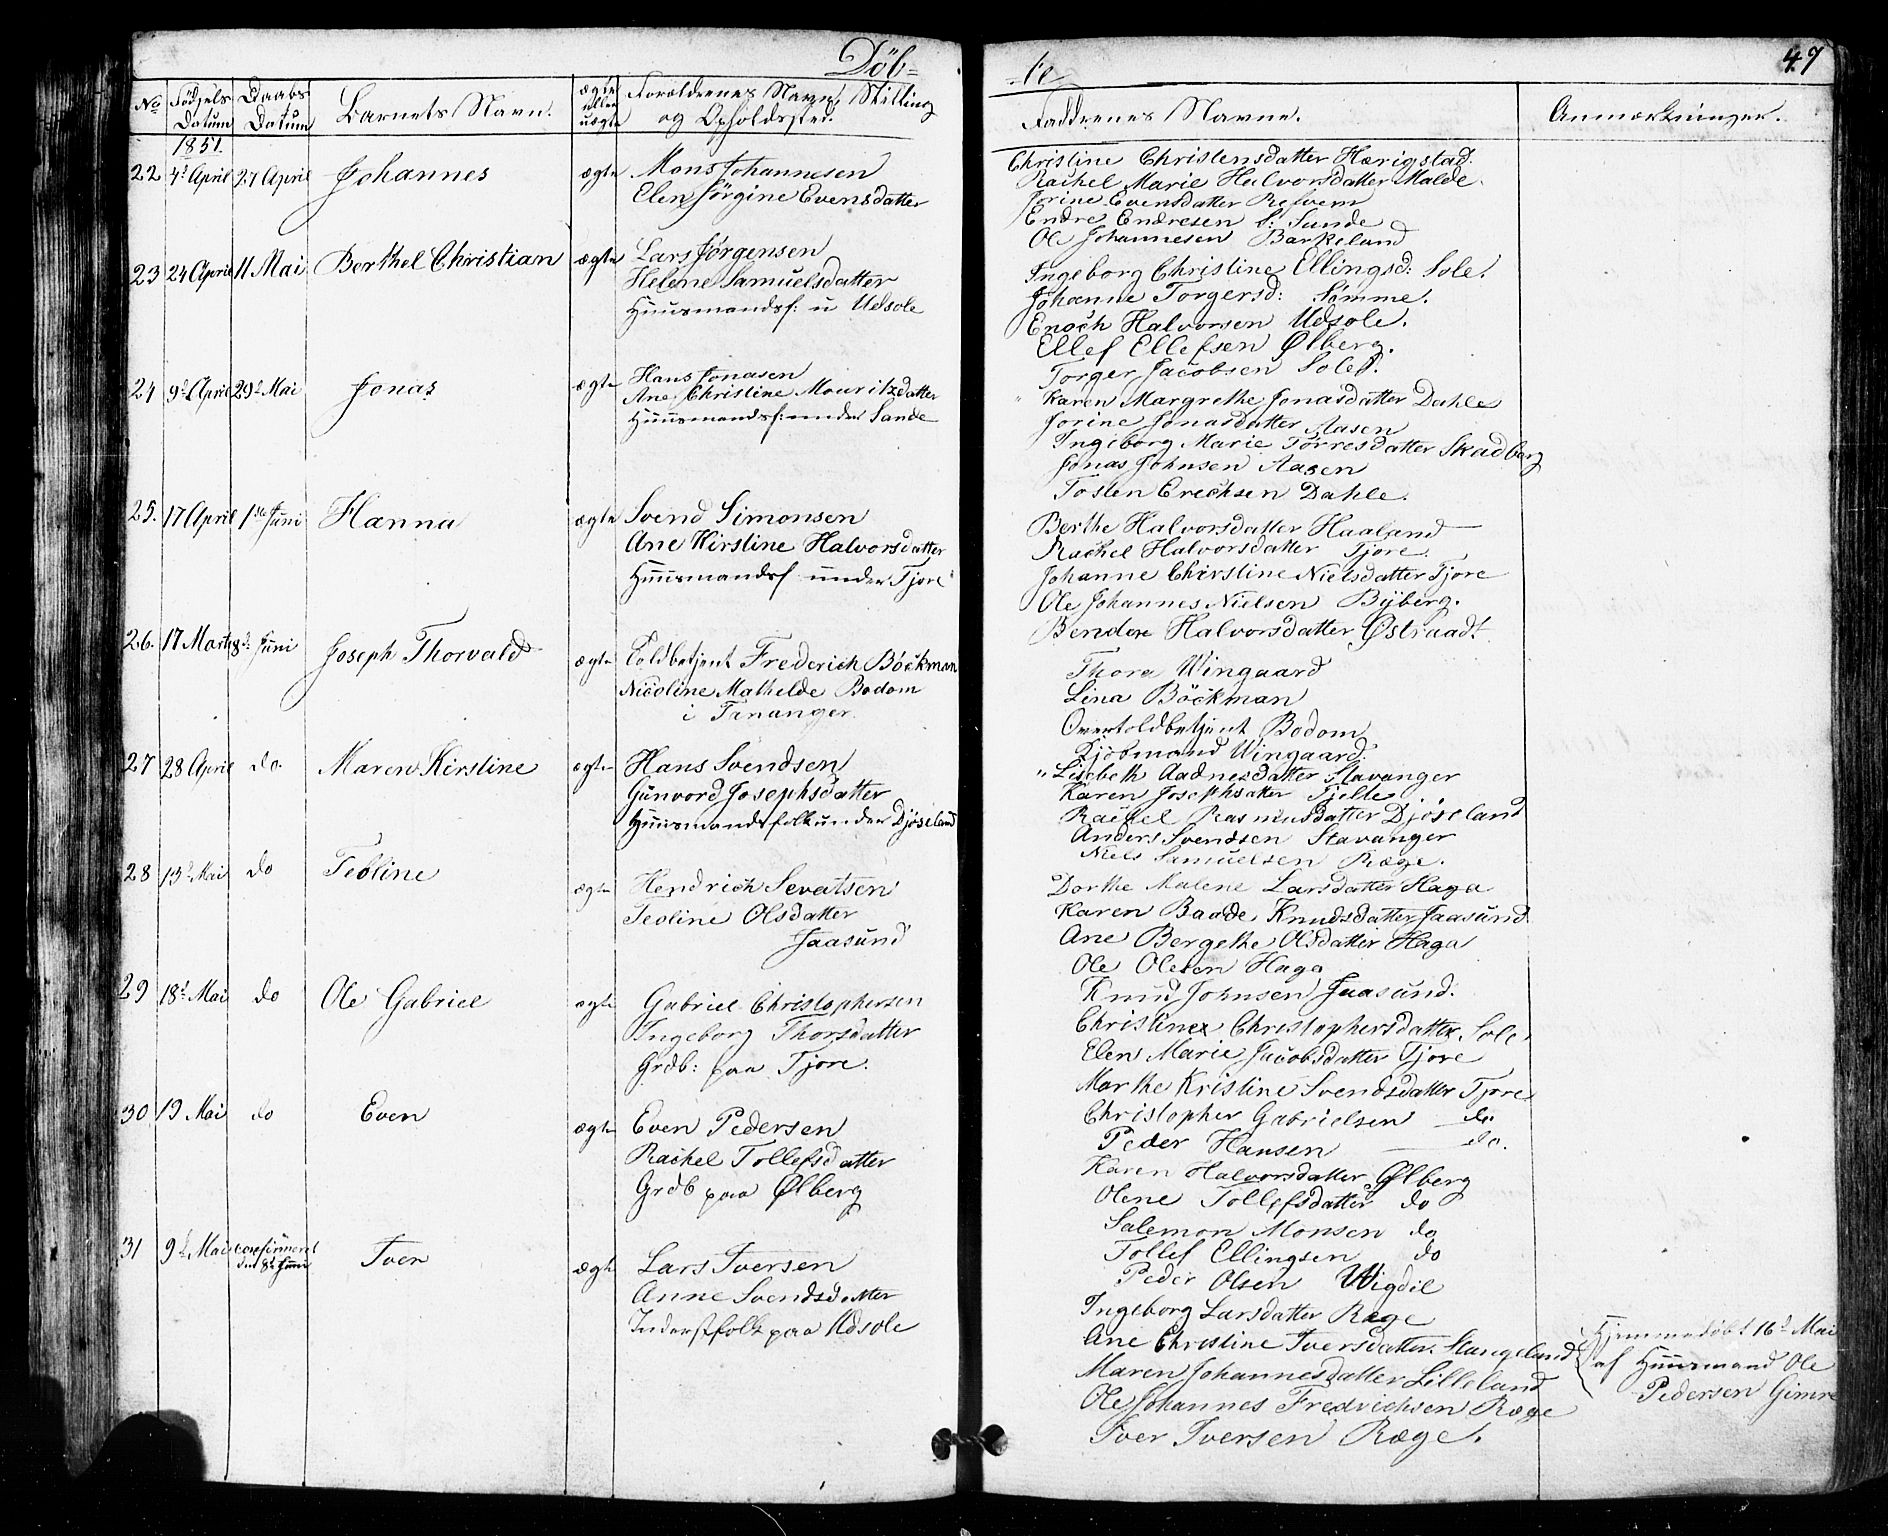 Döb=
=te
47
No
Födsels Datum
Daabs Datum
Barnets Navn.
ægte eller uægte
Forældrenes Navn, Stilling
og Opholdssted.
Faddrenes Navne.
Anmærkninger.
1851.
22 4d April 27 April Johannes ægte Mons Johannesen
Elen Jörgine Evensdatter
Christine Christensdatter Hærigstad.
Rachel Marie Halvorsdatter Malde.
Jorine Evensdatter Refvem
Endre Endresen S: Sunde
Ole Johannesen Barkeland
23 24 April 11 Mai Berthel Christian ægte Lars Jørgensen
Helene Samuelsdatter
Huusmandsf: u Udsole
Ingeborg Christine Ellingsd: Sole.
Johanne Torgersd: Sömme.
Enoch Halvorsen Udsole.
Ellef Ellefsen Ølberg.
Torger Jacobsen Sole.
24 9d April 29d Mai Jonas ægte Hans Jonasen
Ane Christine Mouritzdatter
Huusmandsf: under Sande
Karen Margrethe Jonasdatter Dahle
Jorine Jonasdatter Aasen
Ingeborg Marie Torresdatter Skadberg
Jonas Johnsen Aasen
Tosten Erechsen Dahle.
25. 17 April 1ste Juni Hanna ægte Svend Simonsen
Ane Kirstine Halvorsdatter
Huusmandsf. under Tjore
Berthe Halvorsdatter Haaland
Rachel Halvorsdatter Tjore.
Johanne Christine Nielsdatter Tjore
Ole Johannes Nielsen Byberg.
Halvorsdatter Østraadt
26. 17 Marts 8d Juni Joseph Thorvald ægte Toldbetjent Frederich Böckman
Nicoline Mathelde Bodom
i Tananger.
Thora Wingaard
Lina Böckman
Overtoldbetjent Bodom
Kjöbmand Wingaard.
27 28 April do. Maren Kirstine ægte Hans Svendsen
Gunvord Josephsdatter
Huusmandsfolk under Djöseland
Lisebeth Aadnesdatter Stavanger
Karen Josephsatter Tjelte
Rachel Rasmusdatter Djöseland
Anders Svendsen Stavanger
Niels Samuelsen Ræge.
28 13d Mai do Teoline ægte Hendrich Sevatsen
Teoline Olsdatter
Jaasund
Dorthe Malene Larsdatter Haga
Karen Baade Knudsdatter Jaasund.
Ane Bergethe Olsdatter Haga
Ole Olesen Haga
Knud Johnsen Jaasund.
29 18d Mai do Ole Gabriel ægte Gabriel Christophersen
Ingeborg Thorsdatter
Grdb: paa Tjore.
Christine Christophersdatter Sole
Elen Marie Jacobsdatter Tjore
Marthe Kristine Svendsdatter Tjore
Christopher Gabrielsen do.
Peder Hansen do.
30 19 Mai do Even ægte Even Pedersen
Rachel Tollefsdatter
Grdb paa Ølberg
Karen Halvorsdatter Ølberg
Olene Tollefsdatter do
Salemon Monsen do
Tollef Ellingsen do
Peder Olsen Wigdil
31 9d Mai confirmeret den 8d Juni Iver ægte Lars Iversen
Anne Svendsdatter
Inderstfolk paa Udsole
Ingeborg Larsdatter Ræge
Ane Christine Iversdatter Stangeland
Maren Johannesdatter Lilleland
Ole Johannes Fredrichsen Ræge
Iver Iversen Ræge.
Hjemmedöbt 16d Mai
af Huusmand Ole
Pedersen Gimre